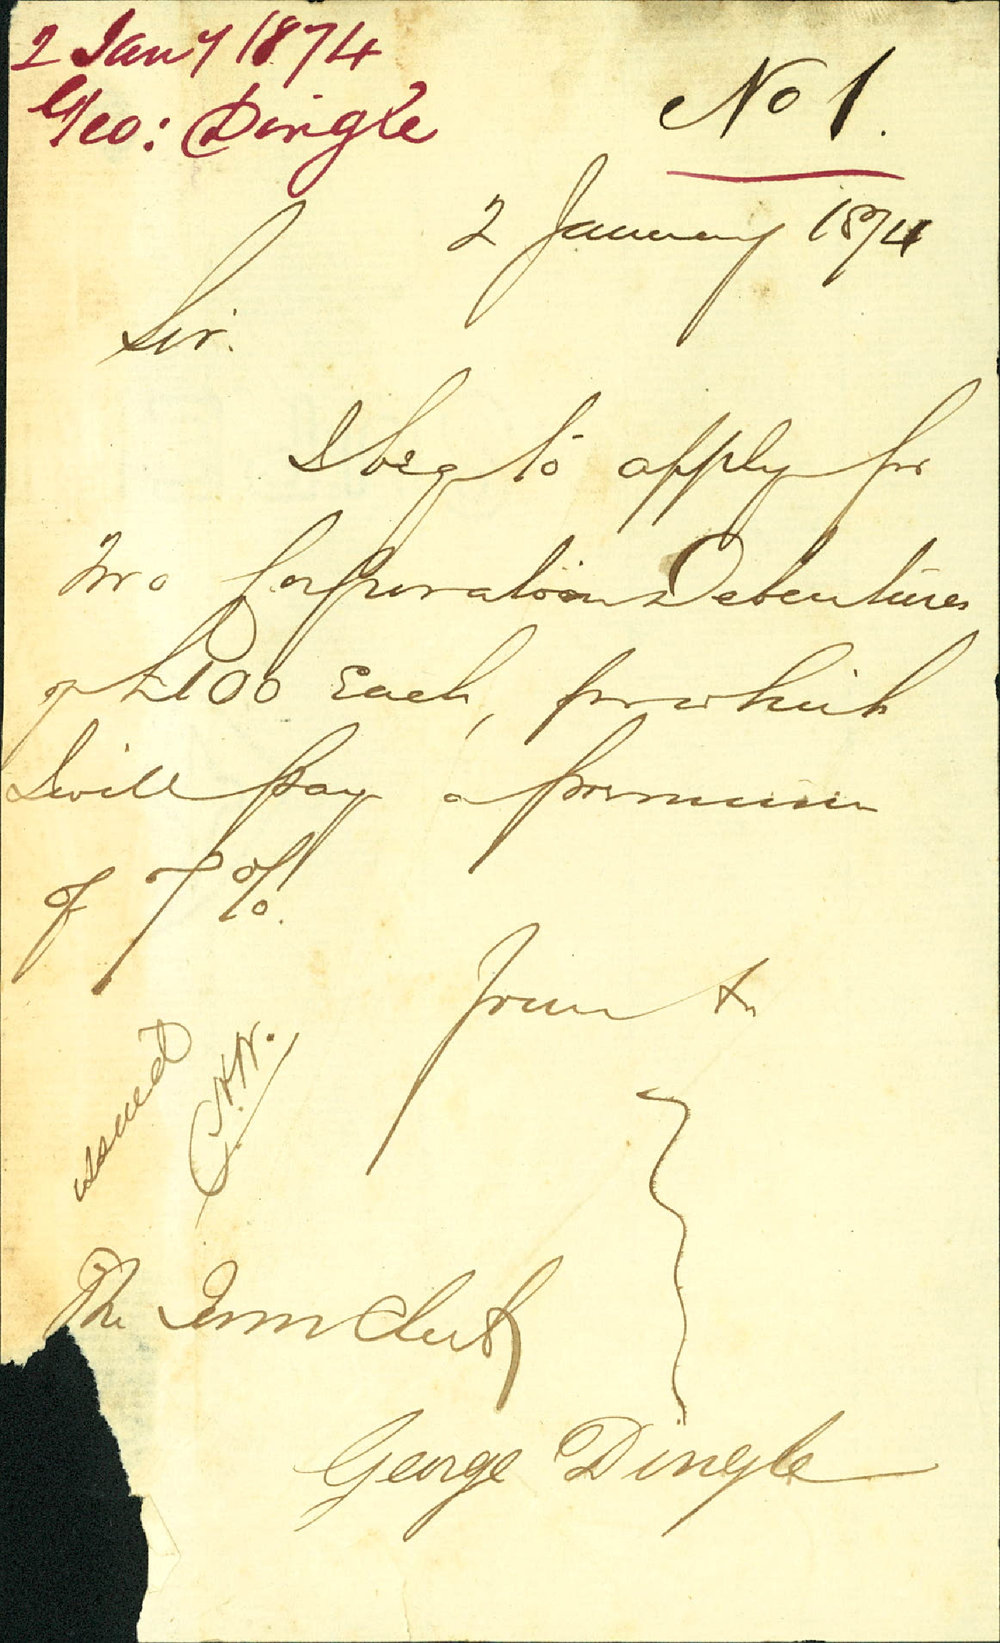 2 Jany 1874
Geo: Dingle
No 1.
2 January 1874
Sir.
I beg to apply for
Two Corporation Debentures
of £100 Each, for which
I will pay a premium
of 7 %.
Yours &c
issued
C.H.W.
The Town Clerk
George Dingle